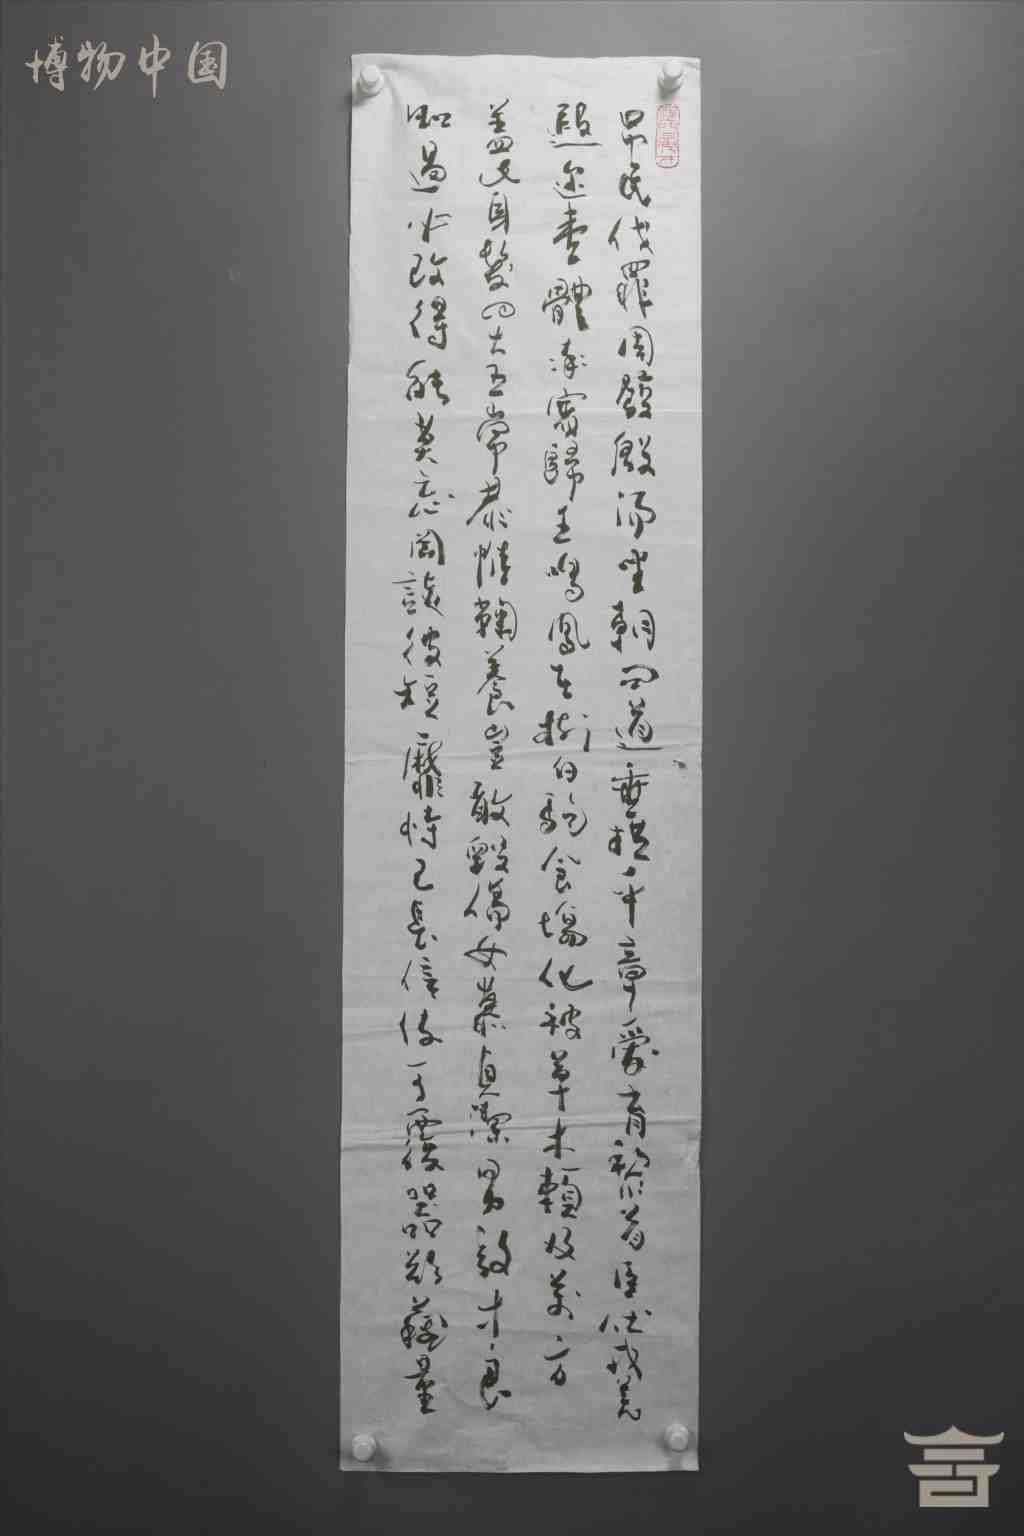 博物中国
吊民伐罪周發殷湯坐朝問道垂拱平章愛育黎首臣伏戎羌
遐邇壹體率賓歸王鳴鳳在樹白駒食場化被草木賴及萬方
蓋此身髮四大五常恭惟鞠養豈敢毀傷女慕貞潔男效才良
知過必改得能莫忘罔談彼短靡恃己長信使可覆器欲難量